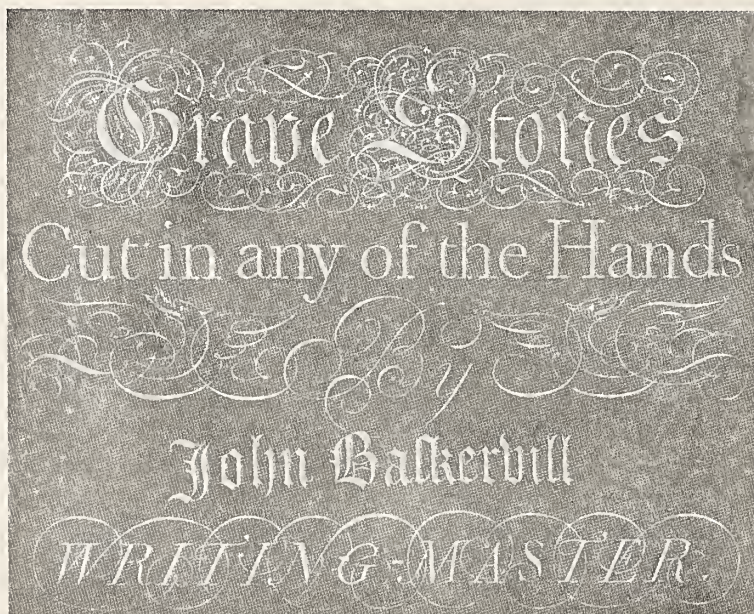 Grave Stones
Cut in any of the Hands
By
John Baſkervill
WRITING-MASTER.